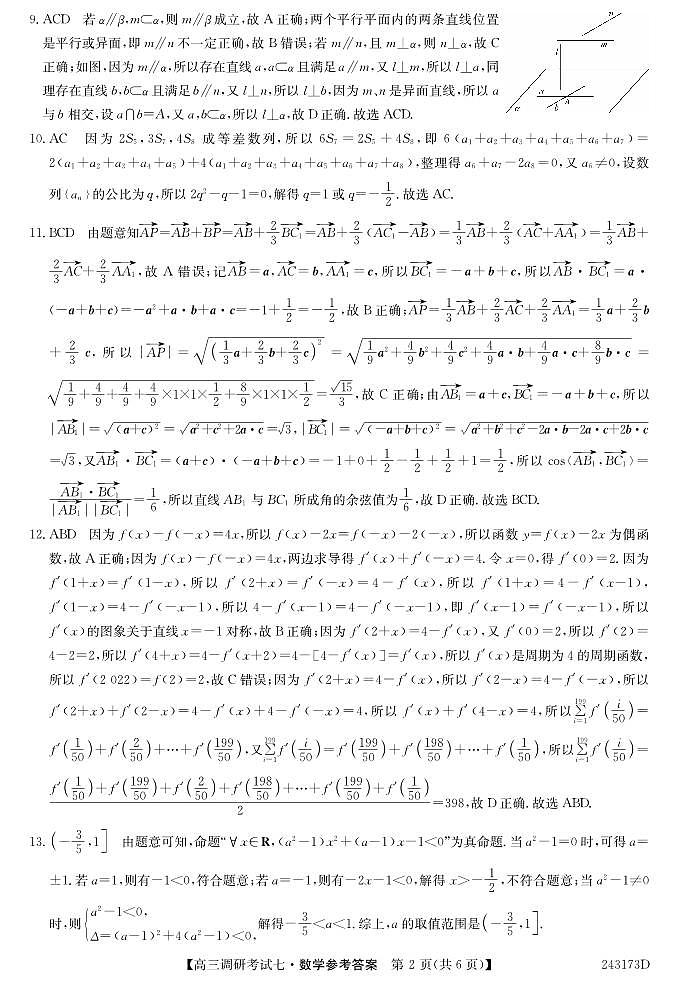 9. ACD　若 α∥β,m⊂α,则 m∥β成立,故 A 正确;两个平行平面内的两条直线位置
是平行或异面,即 m∥n 不一定正确,故 B 错误;若 m∥n,且 m⊥α,则 n⊥α,故 C
正确;如图,因为 m∥α,所以存在直线 a,a⊂α且满足 a∥m,又 l⊥m,所以 l⊥a,同
理存在直线 b,b⊂α且满足 b∥n,又 l⊥n,所以 l⊥b,因为 m、n 是异面直线,所以 a
与 b 相交,设 a∩b=A,又 a,b⊂α,所以 l⊥α,故 D 正确. 故选 ACD.
l m n α b A a
10. AC　因为 2S₅,3S₇,4S₈ 成等差数列,所以 6S₇=2S₅+4S₈,即 6(a₁+a₂+a₃+a₄+a₅+a₆+a₇)=
2(a₁+a₂+a₃+a₄+a₅)+4(a₁+a₂+a₃+a₄+a₅+a₆+a₇+a₈),整理得 a₆+a₇-2a₈=0,又 a₆≠0,设数
列{aₙ}的公比为 q,所以 2q²-q-1=0,解得 q=1 或 q=-1/2. 故选 AC.
11. BCD　由题意知AP→=AB→+BP→=AB→+2/3 BC₁→=AB→+2/3(AC₁→-AB→)=1/3 AB→+2/3(AC→+AA₁→)=1/3 AB→+
2/3 AC→+2/3 AA₁→,故 A 错误;记AB→=a,AC→=b,AA₁→=c,所以BC₁→=-a+b+c,所以AB→·BC₁→=a·
(-a+b+c)=-a²+a·b+a·c=-1+1/2=-1/2,故 B 正确;AP→=1/3 AB→+2/3 AC→+2/3 AA₁→=1/3 a+2/3 b
+2/3 c,所以|AP→|=√((1/3 a+2/3 b+2/3 c)²)=√(1/9 a²+4/9 b²+4/9 c²+4/9 a·b+4/9 a·c+8/9 b·c)=
√(1/9+4/9+4/9+4/9×1×1×1/2+8/9×1×1×1/2)=√15/3,故 C 正确;由AB₁→=a+c,BC₁→=-a+b+c,所以
|AB₁→|=√((a+c)²)=√(a²+c²+2a·c)=√3,|BC₁→|=√((-a+b+c)²)=√(a²+b²+c²-2a·b-2a·c+2b·c)
=√3,又AB₁→·BC₁→=(a+c)·(-a+b+c)=-1+0+1/2-1/2+1/2+1=1/2,所以 cos⟨AB₁→,BC₁→⟩=
AB₁→·BC₁→/(|AB₁→||BC₁→|)=1/6,所以直线 AB₁ 与 BC₁ 所成角的余弦值为1/6,故 D 正确. 故选 BCD.
12. ABD　因为 f(x)-f(-x)=4x,所以 f(x)-2x=f(-x)-2(-x),所以函数 y=f(x)-2x 为偶函
数,故 A 正确;因为 f(x)-f(-x)=4x,两边求导得 f′(x)+f′(-x)=4. 令 x=0,得 f′(0)=2. 因为
f′(1+x)=f′(1-x),所以 f′(2+x)=f′(-x)=4-f′(x),所以 f′(1+x)=4-f′(x-1),
f′(1-x)=4-f′(-x-1),所以 4-f′(x-1)=4-f′(-x-1),即 f′(x-1)=f′(-x-1),所以
f′(x)的图象关于直线 x=-1 对称,故 B 正确;因为 f′(2+x)=4-f′(x),又 f′(0)=2,所以 f′(2)=
4-2=2,所以 f′(4+x)=4-f′(x+2)=4-[4-f′(x)]=f′(x),所以 f′(x)是周期为 4 的周期函数,
所以 f′(2 022)=f(2)=2,故 C 错误;因为 f′(2+x)=4-f′(x),所以 f′(2-x)=4-f′(-x),所以
f′(2+x)+f′(2-x)=4-f′(x)+4-f′(-x)=4,所以 f′(x)+f′(4-x)=4,所以 199∑i=1 f′(i/50)=
f′(1/50)+f′(2/50)+···+f′(199/50),又199∑i=1 f′(i/50)=f′(199/50)+f′(198/50)+···+f′(1/50),所以199∑i=1 f′(i/50)=
(f′(1/50)+f′(199/50)+f′(2/50)+f′(198/50)+···+f′(199/50)+f′(1/50))/2=398,故 D 正确. 故选 ABD.
13. (-3/5,1]　由题意可知,命题“∀x∈R,(a²-1)x²+(a-1)x-1<0”为真命题. 当 a²-1=0 时,可得 a=
±1. 若 a=1,则有-1<0,符合题意;若 a=-1,则有-2x-1<0,解得 x>-1/2,不符合题意;当 a²-1≠0
时,则{a²-1<0, Δ=(a-1)²+4(a²-1)<0, 解得-3/5<a<1. 综上,a 的取值范围是(-3/5,1].
【高三调研考试七·数学参考答案　第 2 页(共 6 页)】　243173D